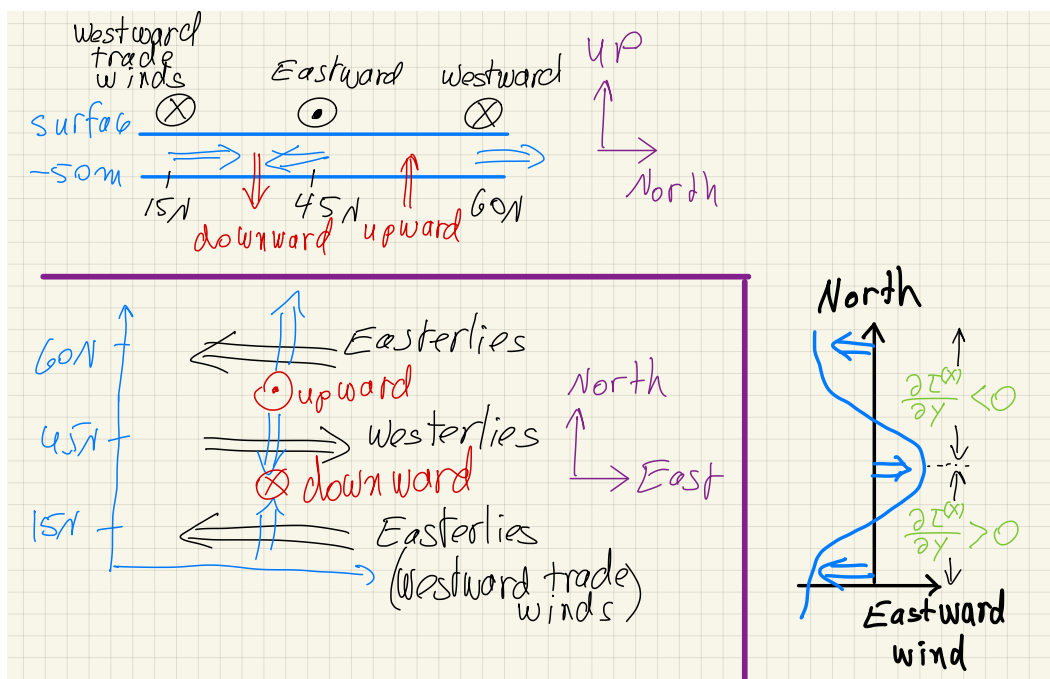 Westward
trade
winds
Eastward
Westward
surfac
-50m
15N
45N
60N
downward
upward
UP
North
60N
45N
15N
Easterlies
upward
Westerlies
downward
Easterlies
(Westward trade
winds)
North
East
North
∂τ⁽ˣ⁾/∂y <0
∂τ⁽ˣ⁾/∂y >0
Eastward
wind